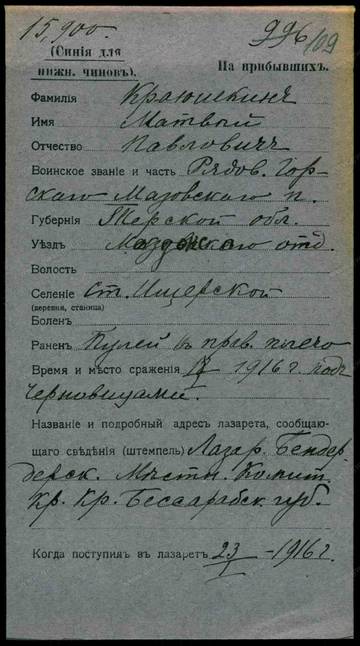 15,900.
996/109
(Синія для
нижн. чиновъ).
На прибывшихъ.
Фамилія Краюшкинъ
Имя Матвѣй
Отчество Павловичъ
Воинское званіе и часть Рядов. Гор-
скаго Мозовскаго п.
Губернія Терской обл.
Уѣздъ отд.
Волость
Селеніе Ст. Ищерской
(деревня, станица)
Боленъ
Раненъ Пулей въ прав. плечо
Время и мѣсто сраженія 1916 г. подъ
Черновицами.
Названіе и подробный адресъ лазарета, сообщаю-
щаго свѣдѣнія (штемпель) Лазар. Бендер-
дерск. Мѣстн. Комит.
Кр. Кр. Бессарабск. губ.
Когда поступилъ въ лазаретъ 23/I - 1916 г.